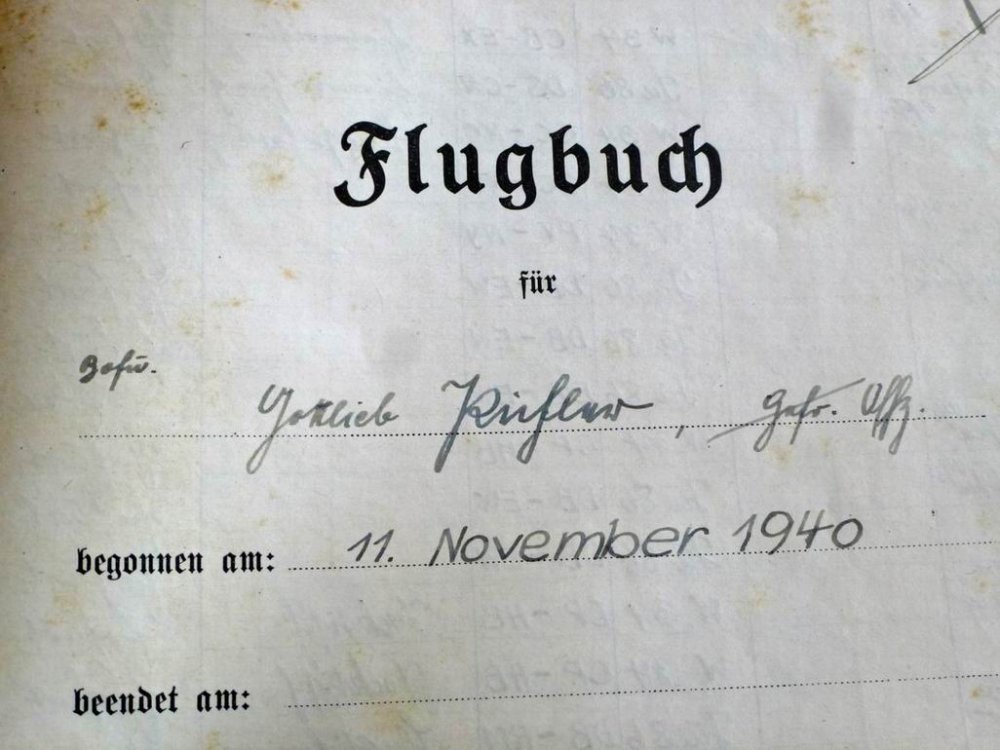 Flugbuch
für
Bofu.
Gottlieb Pichler, Gefr. Uffz.
begonnen am: 11. November 1940
beendet am: